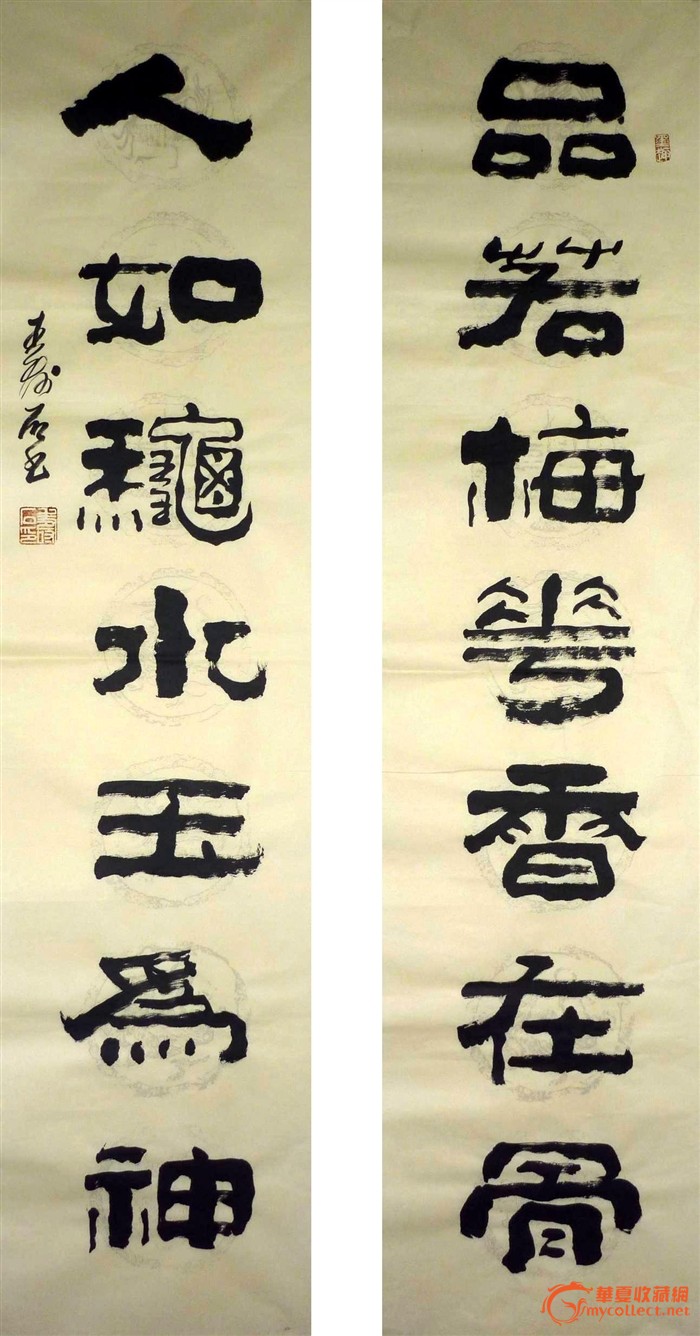 品若梅華香在骨
人如龝水玉爲神
王寿石书
華夏收藏網
mycollect.net